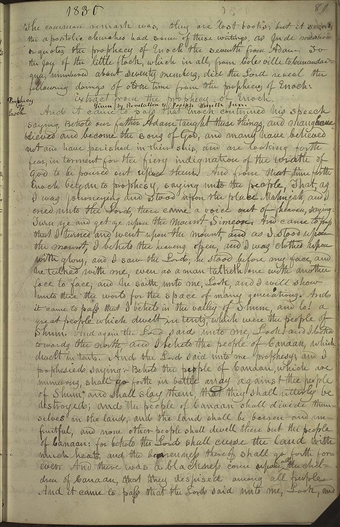 1830
The common remark was, they are lost books; but it seems,
the apostolic churches had some of these writings, as Jude mentions
or quotes the prophecy of Enoch the seventh from Adam. To
the joy of the little flock, which in all, from Colesville to Canandai-
gua, numbered about seventy members, did the Lord reveal the
following doings of olden time from the prophecy of Enoch.
Prophecy of Enoch
Extract from the prophecy of Enoch.
And it came to pass that Enoch continued his speech
saying, behold our father Adam taught these things, and many have
believed and become the sons of God, and many have believed
not and have perished in their sins, and are looking forth
fear, in torment for the fiery indignation of the wrath of
God to be poured out upon them. And from that time forth
Enoch began to prophecy, saying unto the people, that, as
I was journeying and stood upon the place Mahujah, and
cried unto the Lord, there came a voice out of heaven, saying,
Turn ye and get ye upon the mount Simeon. And it came to pass
that I turned and went upon the mount, and as I stood upon
the mount, I beheld the heavens open, and I was clothed upon
with glory, and I saw the Lord, he stood before my face, and
he talked with me, even as a man talketh one with another
face to face; and he saith unto me, Look, and I will show
unto thee the world for the space of many generations. And
it came to pass that I beheld in the valley of Shum, and lo! a
great people which dwelt in tents, which were the people of
Shum. And again the Lord said unto me, Look, and I looked
towards the north, and I beheld the people of Canaan, which
dwelt in tents. And the Lord said unto me, Prophesy, and I
prophesied saying, Behold the people of Canaan, which are
numerous, shall go forth in battle array against the people
of Shum, and shall slay them, that they shall utterly be
destroyed; and the people of Canaan shall divide them-
selves in the land, and the land shall be barren and un-
fruitful, and none other people shall dwell there but the people
of Canaan; for behold the Lord shall curse the land with
much heat, and the barrenness thereof shall go forth for-
ever. And there was a blackness come upon all the chil-
dren of Canaan, that they were despised among all people.
And it came to pass that the Lord said unto me, Look, and